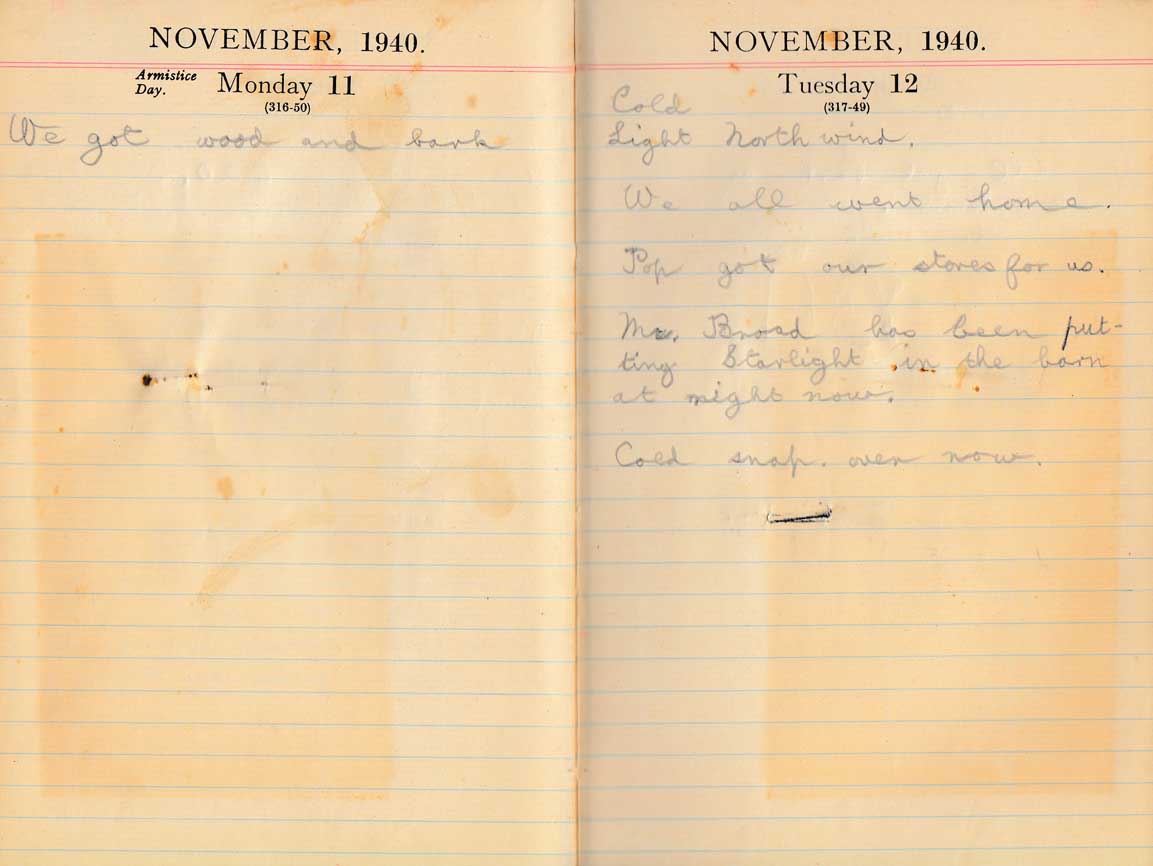 NOVEMBER, 1940.
Armistice
Day.
Monday 11
(316-50)
We got wood and bark
NOVEMBER, 1940.
Tuesday 12
(317-49)
Cold
Light North wind.
We all went home.
Pop got our stores for us.
Mr. Broad has been put-
ting Starlight in the barn
at night now.
Cold snap. over now.